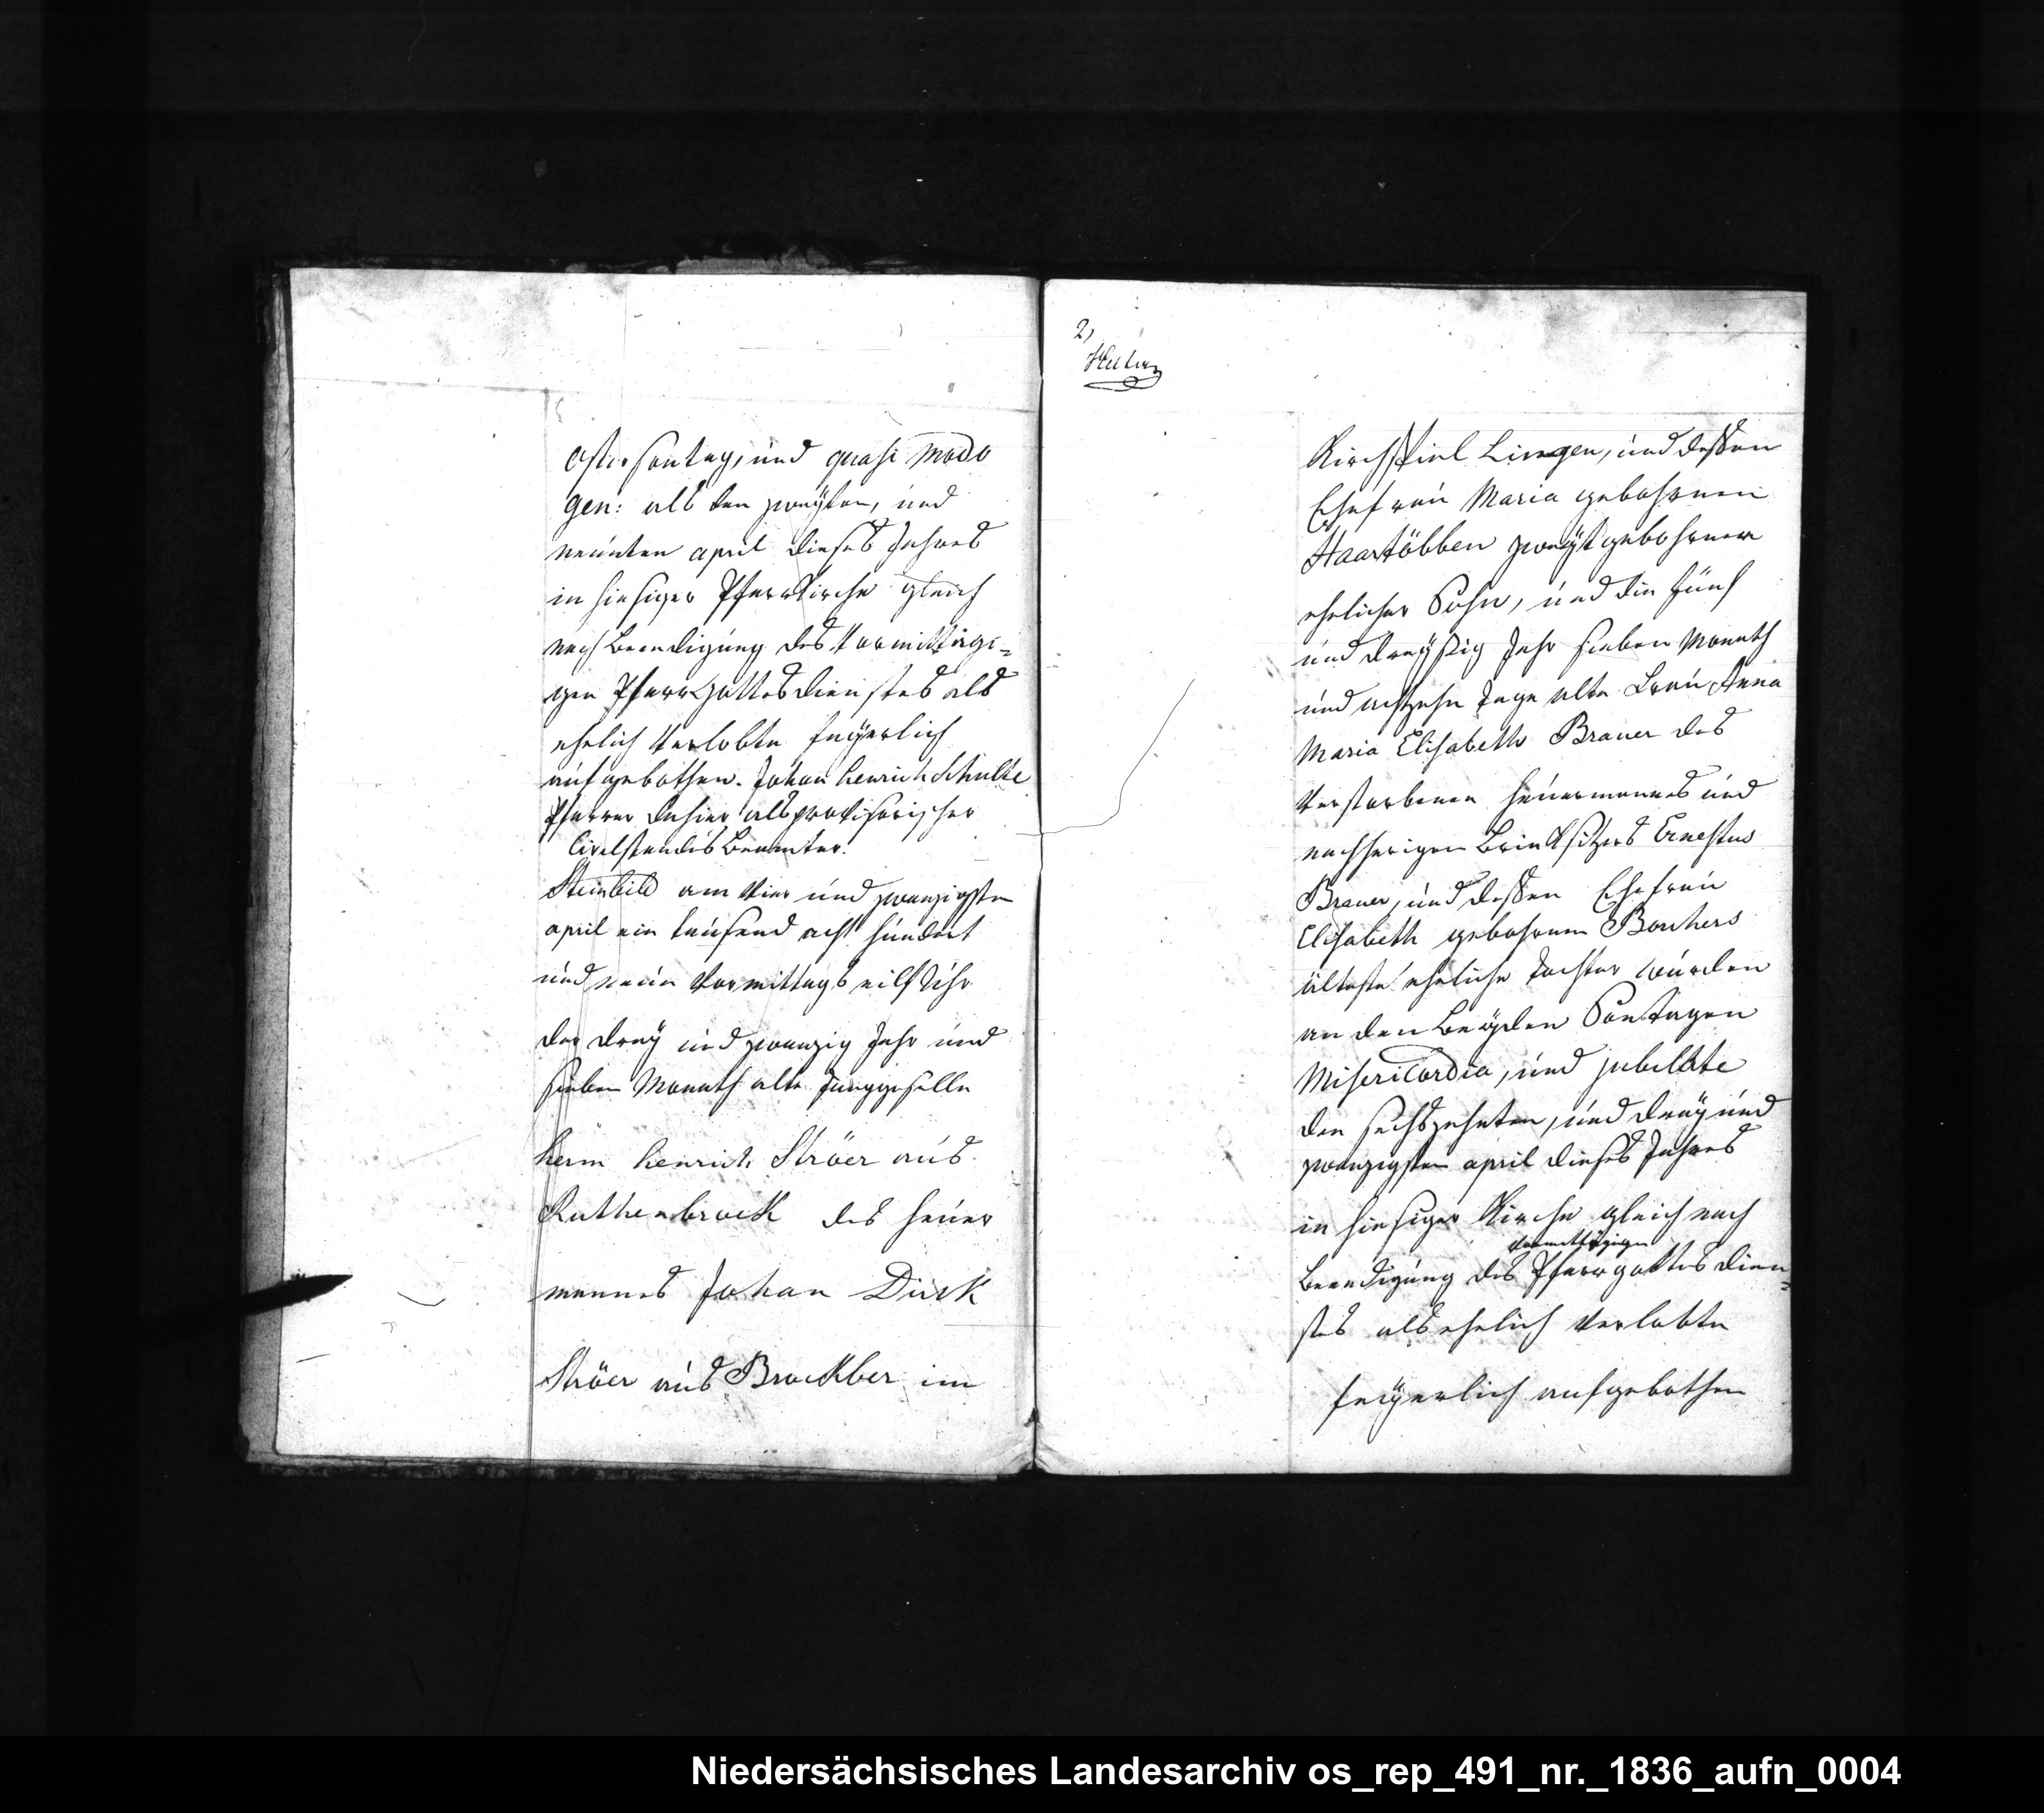 Ostersontag, und quasi modo
gen: als den zweyten, und
neunten april dieses Jahres
in hiesiger Pfarrkirche gleich
nach Beendigung des Vormittägi-
gen Pfarrgottesdienstes als
ehelich Verlobte feyerlich
aufgebothen. Johan henrich Schulte
Pfarrer dahier als provisorischer
Civilstandes Beamter.
Steinbild am Vier und zwanzigsten
april ein tausend acht hundert
und neun Vormittags eilf Uhr
der drey und zwanzig Jahr und
sieben Monath alte Junggeselle
herm henrich Ströer aus
Ruthenbrock des heuer
mannes Johan Dirk
Ströer aus Brockber im
2,
Kirchspiel Lingen, und dessen
Ehefrau Maria gebohrnen
Haartöbben zweyt gebohrner
ehelicher Sohn, und die fünf
und dreyßig Jahr sieben Monath
und achtzehn Tage alte Brau Anna
Maria Elisabeth Braner des
Verstorbenen heuermannes und
nachherigen Brinksitzers Ernestus
Braner, und dessen Ehefrau
Elisabeth gebohrnen Bonhers
älteste eheliche Tochter wurden
an den Beyden Sontagen
Misericordia, und jubilate
den sechszehnten, und drey und
zwanzigsten april dieses Jahres
in hiesiger Kirche gleich nach
vormittägigen
Beendigung des Pfarrgottesdien-
stes als ehelich Verlobte
feyerlich aufgebothen
Niedersächsisches Landesarchiv os_rep_491_nr._1836_aufn_0004